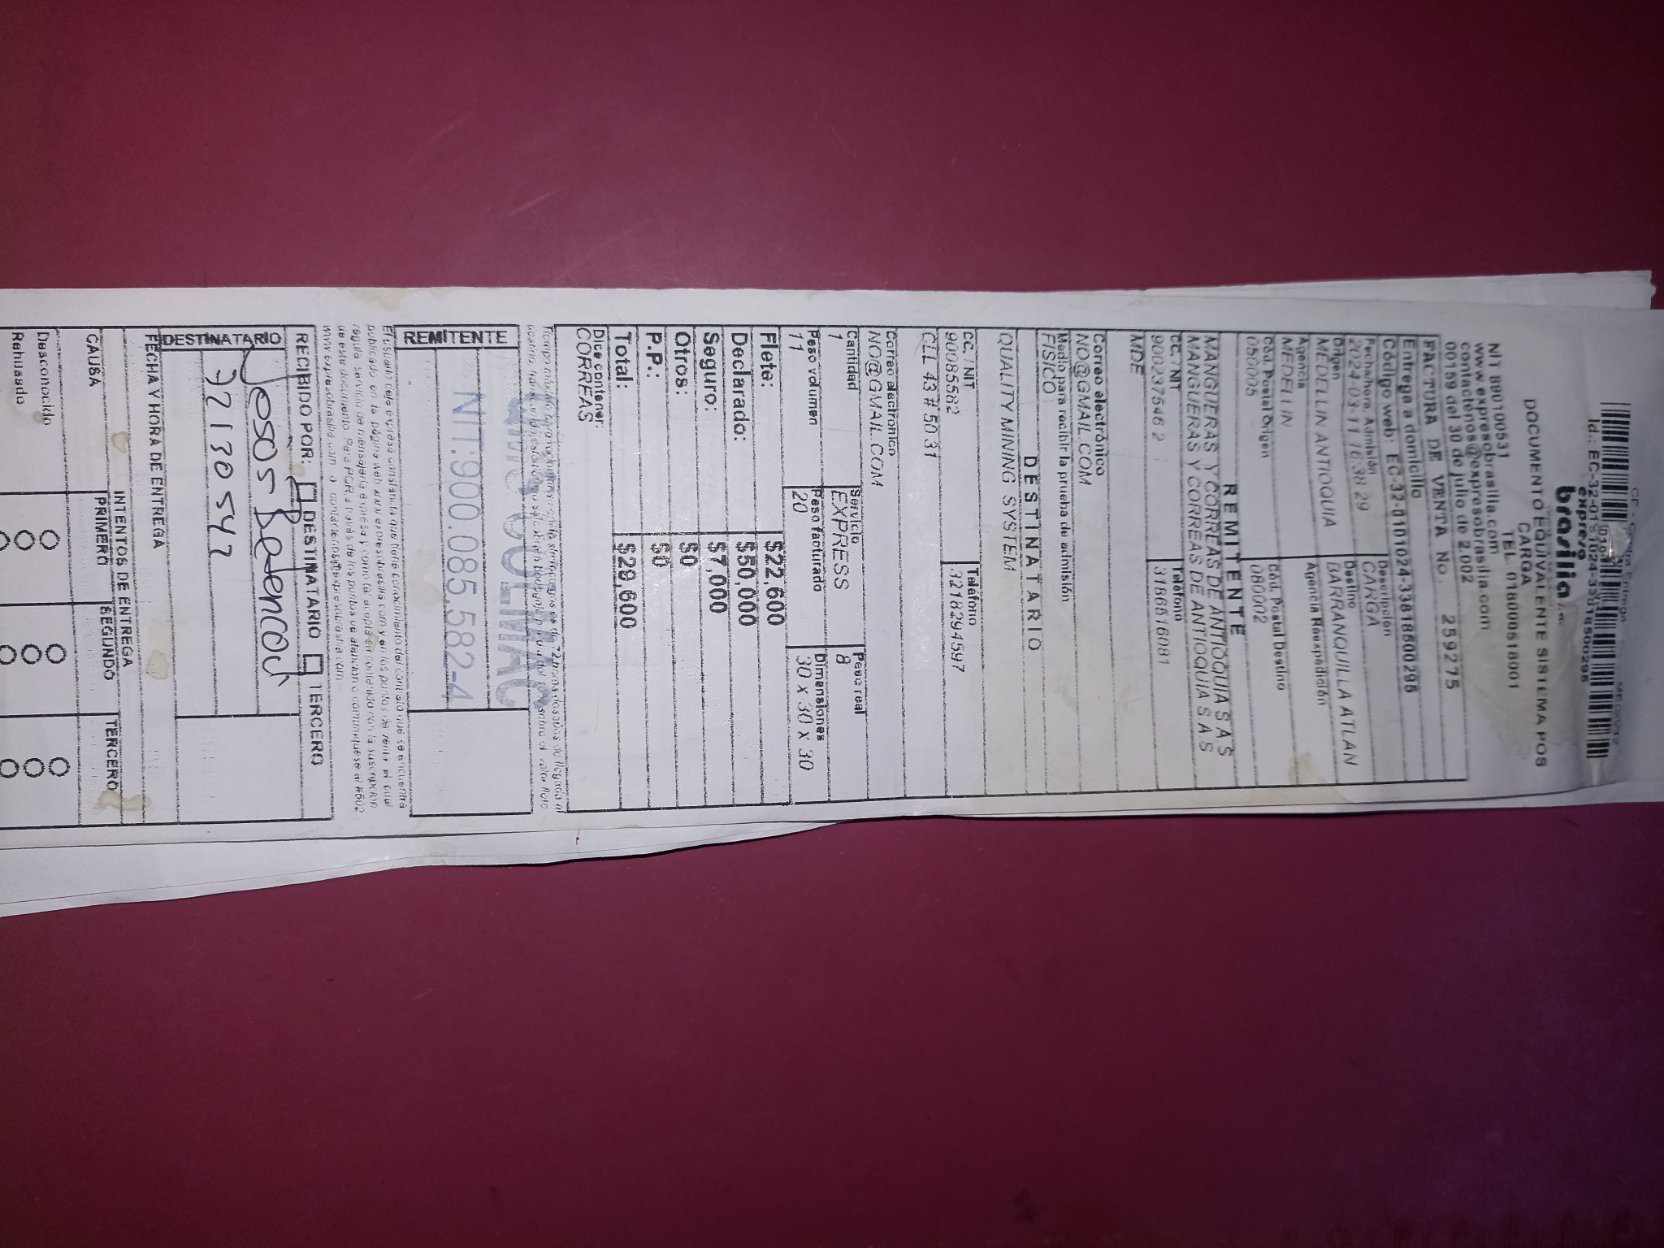 Id.: EC-32-01
expreso
brasilia
DOCUMENTO EQUIVALENTE SISTEMA POS
CARGA
NIT 890100531 TEL. 018000518001
www.expresobrasilia.com
contactenos@expresobrasilia.com
00159 del 30 de julio de 2.002
FACTURA DE VENTA No. 259275
Entrega a domicilio
Código web: EC-32-0101024-33818500295
Fecha/hora Admisión Descripción
2024-03-11 16:38:29 CARGA
Origen Destino
MEDELLIN ANTIOQUIA BARRANQUILLA ATLAN
Agencia Agencia Reexpedición
MEDELLIN
Cód. Postal Origen Cód. Postal Destino
050005 080002
REMITENTE
MANGUERAS Y CORREAS DE ANTIOQUIA S A S
MANGUERAS Y CORREAS DE ANTIOQUIA S A S
CC. / NIT Teléfono
900237546 2 3156516081
MDE
Correo electrónico
NO@GMAIL.COM
Medio para recibir la prueba de admisión
FISICO
DESTINATARIO
QUALITY MINING SYSTEM
CC. / NIT Teléfono
90085582 3218294597
CLL 43 # 50 31
Correo electrónico
NO@GMAIL.COM
Cantidad Servicio Peso real
1 EXPRESS 8
Peso volumen Peso facturado Dimensiones
11 20 30 x 30 x 30
Flete: $22,600
Declarado: $50,000
Seguro: $7,000
Otros: $0
P.P.: $0
Total: $29,600
Dice contener:
CORREAS
REMITENTE
NIT:900.085.582-4
RECIBIDO POR: DESTINATARIO TERCERO
DESTINATARIO
FECHA Y HORA DE ENTREGA
INTENTOS DE ENTREGA
CAUSA PRIMERO SEGUNDO TERCERO
Desconocido
Rehusado